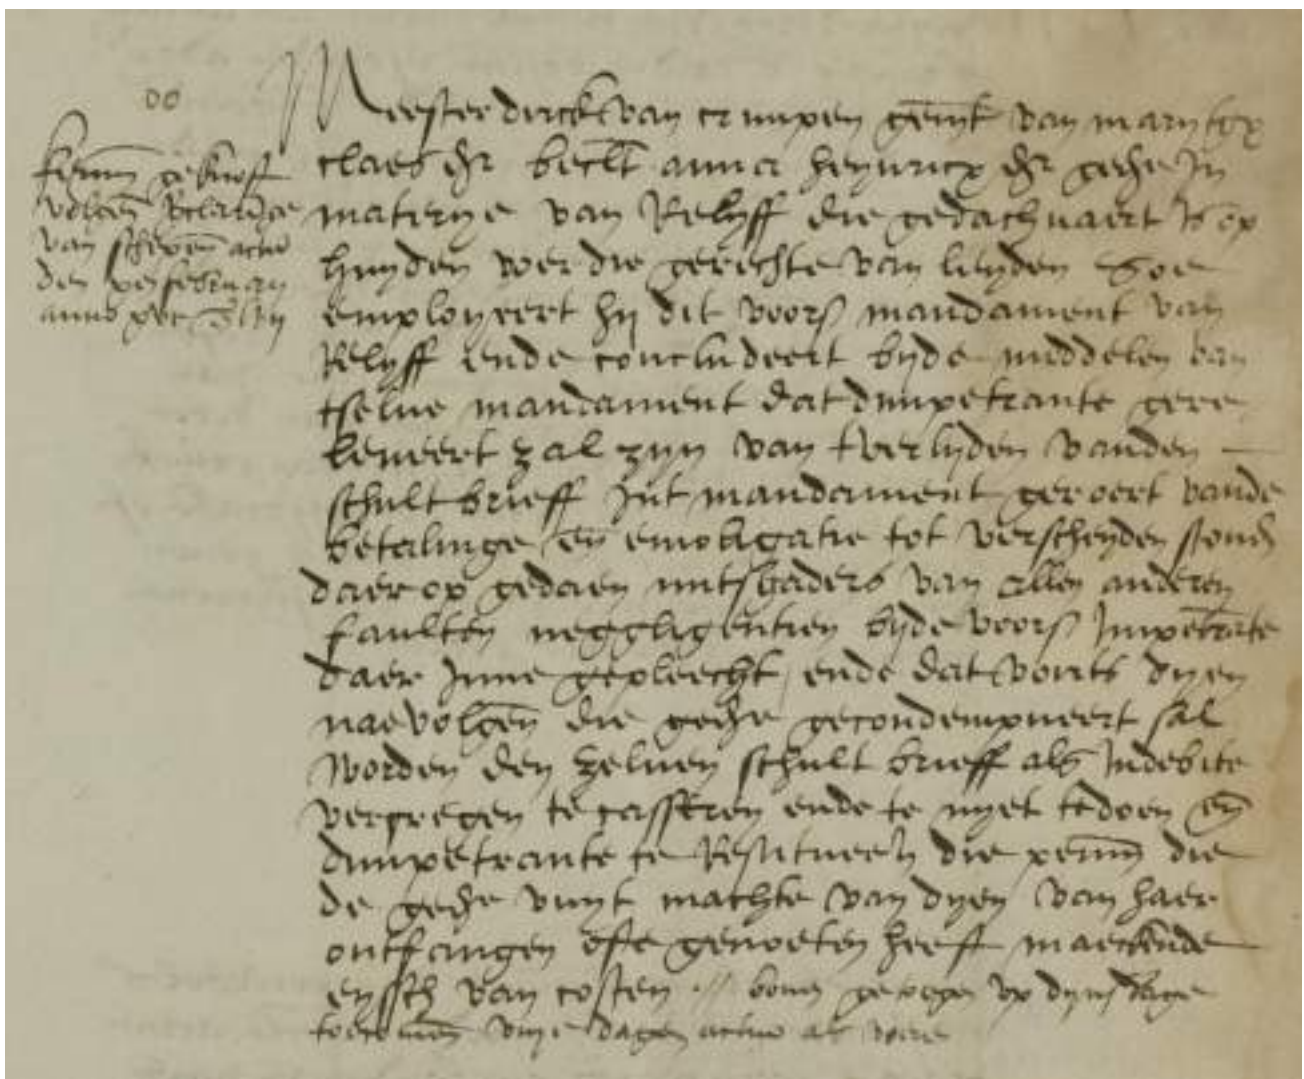 oo
geknoft
volgen
van schepen actum
den februarij
anno
Meester Dirck van Crimpen gemt van Marijtgx
Claes dr beclt Anna Heynricx dr gedhe in
materye van Relyff die gedachvaert is op
huyden voer die gerechte van Leyden Soe
employeert hij dit voors mandament van
Relyff ende concludeert bijde middelen van
tselve mandament dat dimpetrante gere
leveert zal zijn van tverlijden vanden
schultbrieff int mandament geroert vande
betalinge en emobligatie tot verscheyden stond
daer op gedaen mitsgaders van allen anderen
faulten neggligentien bijde voors Impetrate
daer Inne gepleecht / ende dat voirts dyen
naevolgen die gedhe gecondempneert sal
worden den zelven schult brieff als Indebite
vercregen te casseren ende te nyet te doen en
dimpetrante te Restitueren die penn die
de gedhe vuyt machte van dyen van haer
ontfangen ofte genoeten heeft maeckende
eyssch van costen
dagen actum als voere